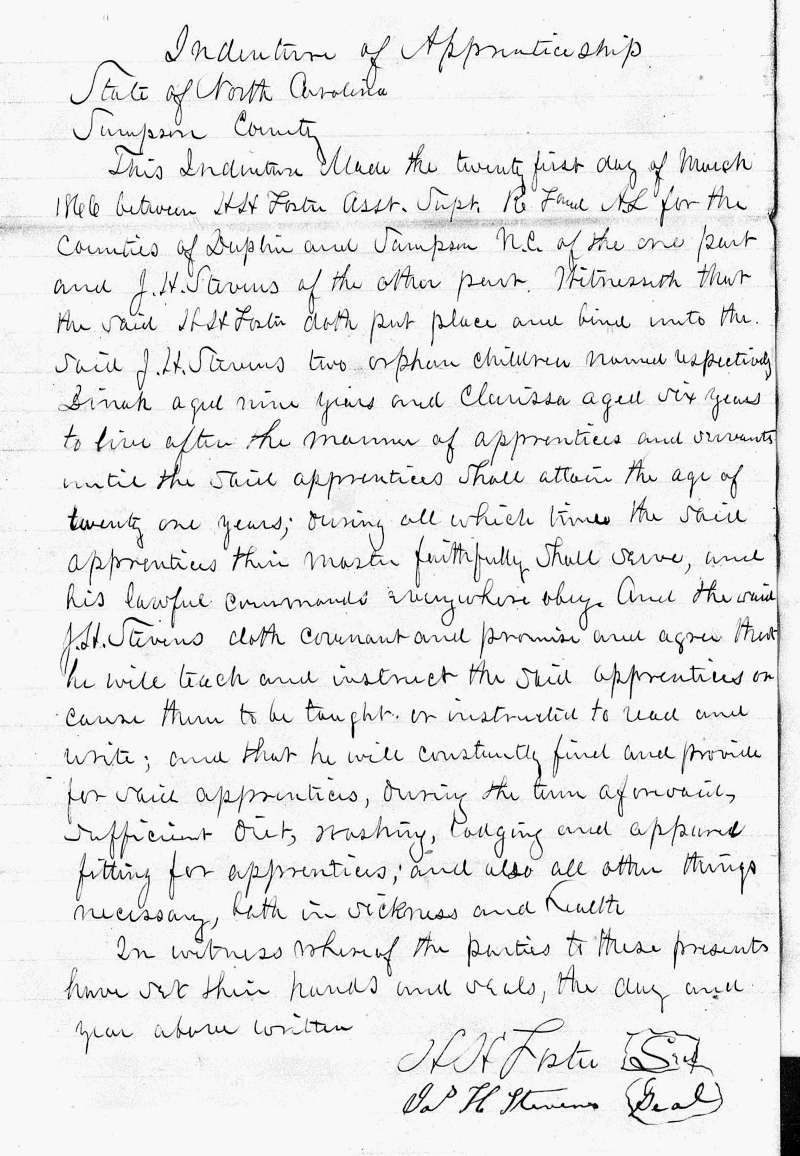 Indenture of Apprenticeship
State of North Carolina
Sampson County
This Indenture Made the twenty first day of March
1866 between HH Foster Asst. Supt. R F and AL for the
Counties of Duplin and Sampson N.C. of the one part
and J.H. Stevens of the other part. Witnesseth that
the said HH Foster doth put place and bind unto the
said J.H. Stevens two orphan children named respectively
Dinah aged nine years and Clarissa aged six years
to live after the manner of apprentices and servants
until the said apprentices shall attain the age of
twenty one years; during all which time the said
apprentices their master faithfully shall serve, and
his lawful commands everywhere obey. And the said
J.H. Stevens doth covenant and promise and agree that
he will teach and instruct the said apprentices or
cause them to be taught or instructed to read and
write; and that he will constantly find and provide
for said apprentices, during the term aforesaid,
sufficient diet, washing, lodging and apparel
fitting for apprentices; and also all other things
necessary, both in sickness and health
In witness whereof the parties to these presents
have set their hands and seals, the day and
year above written
HH Foster Seal
Jas H Stevens Seal